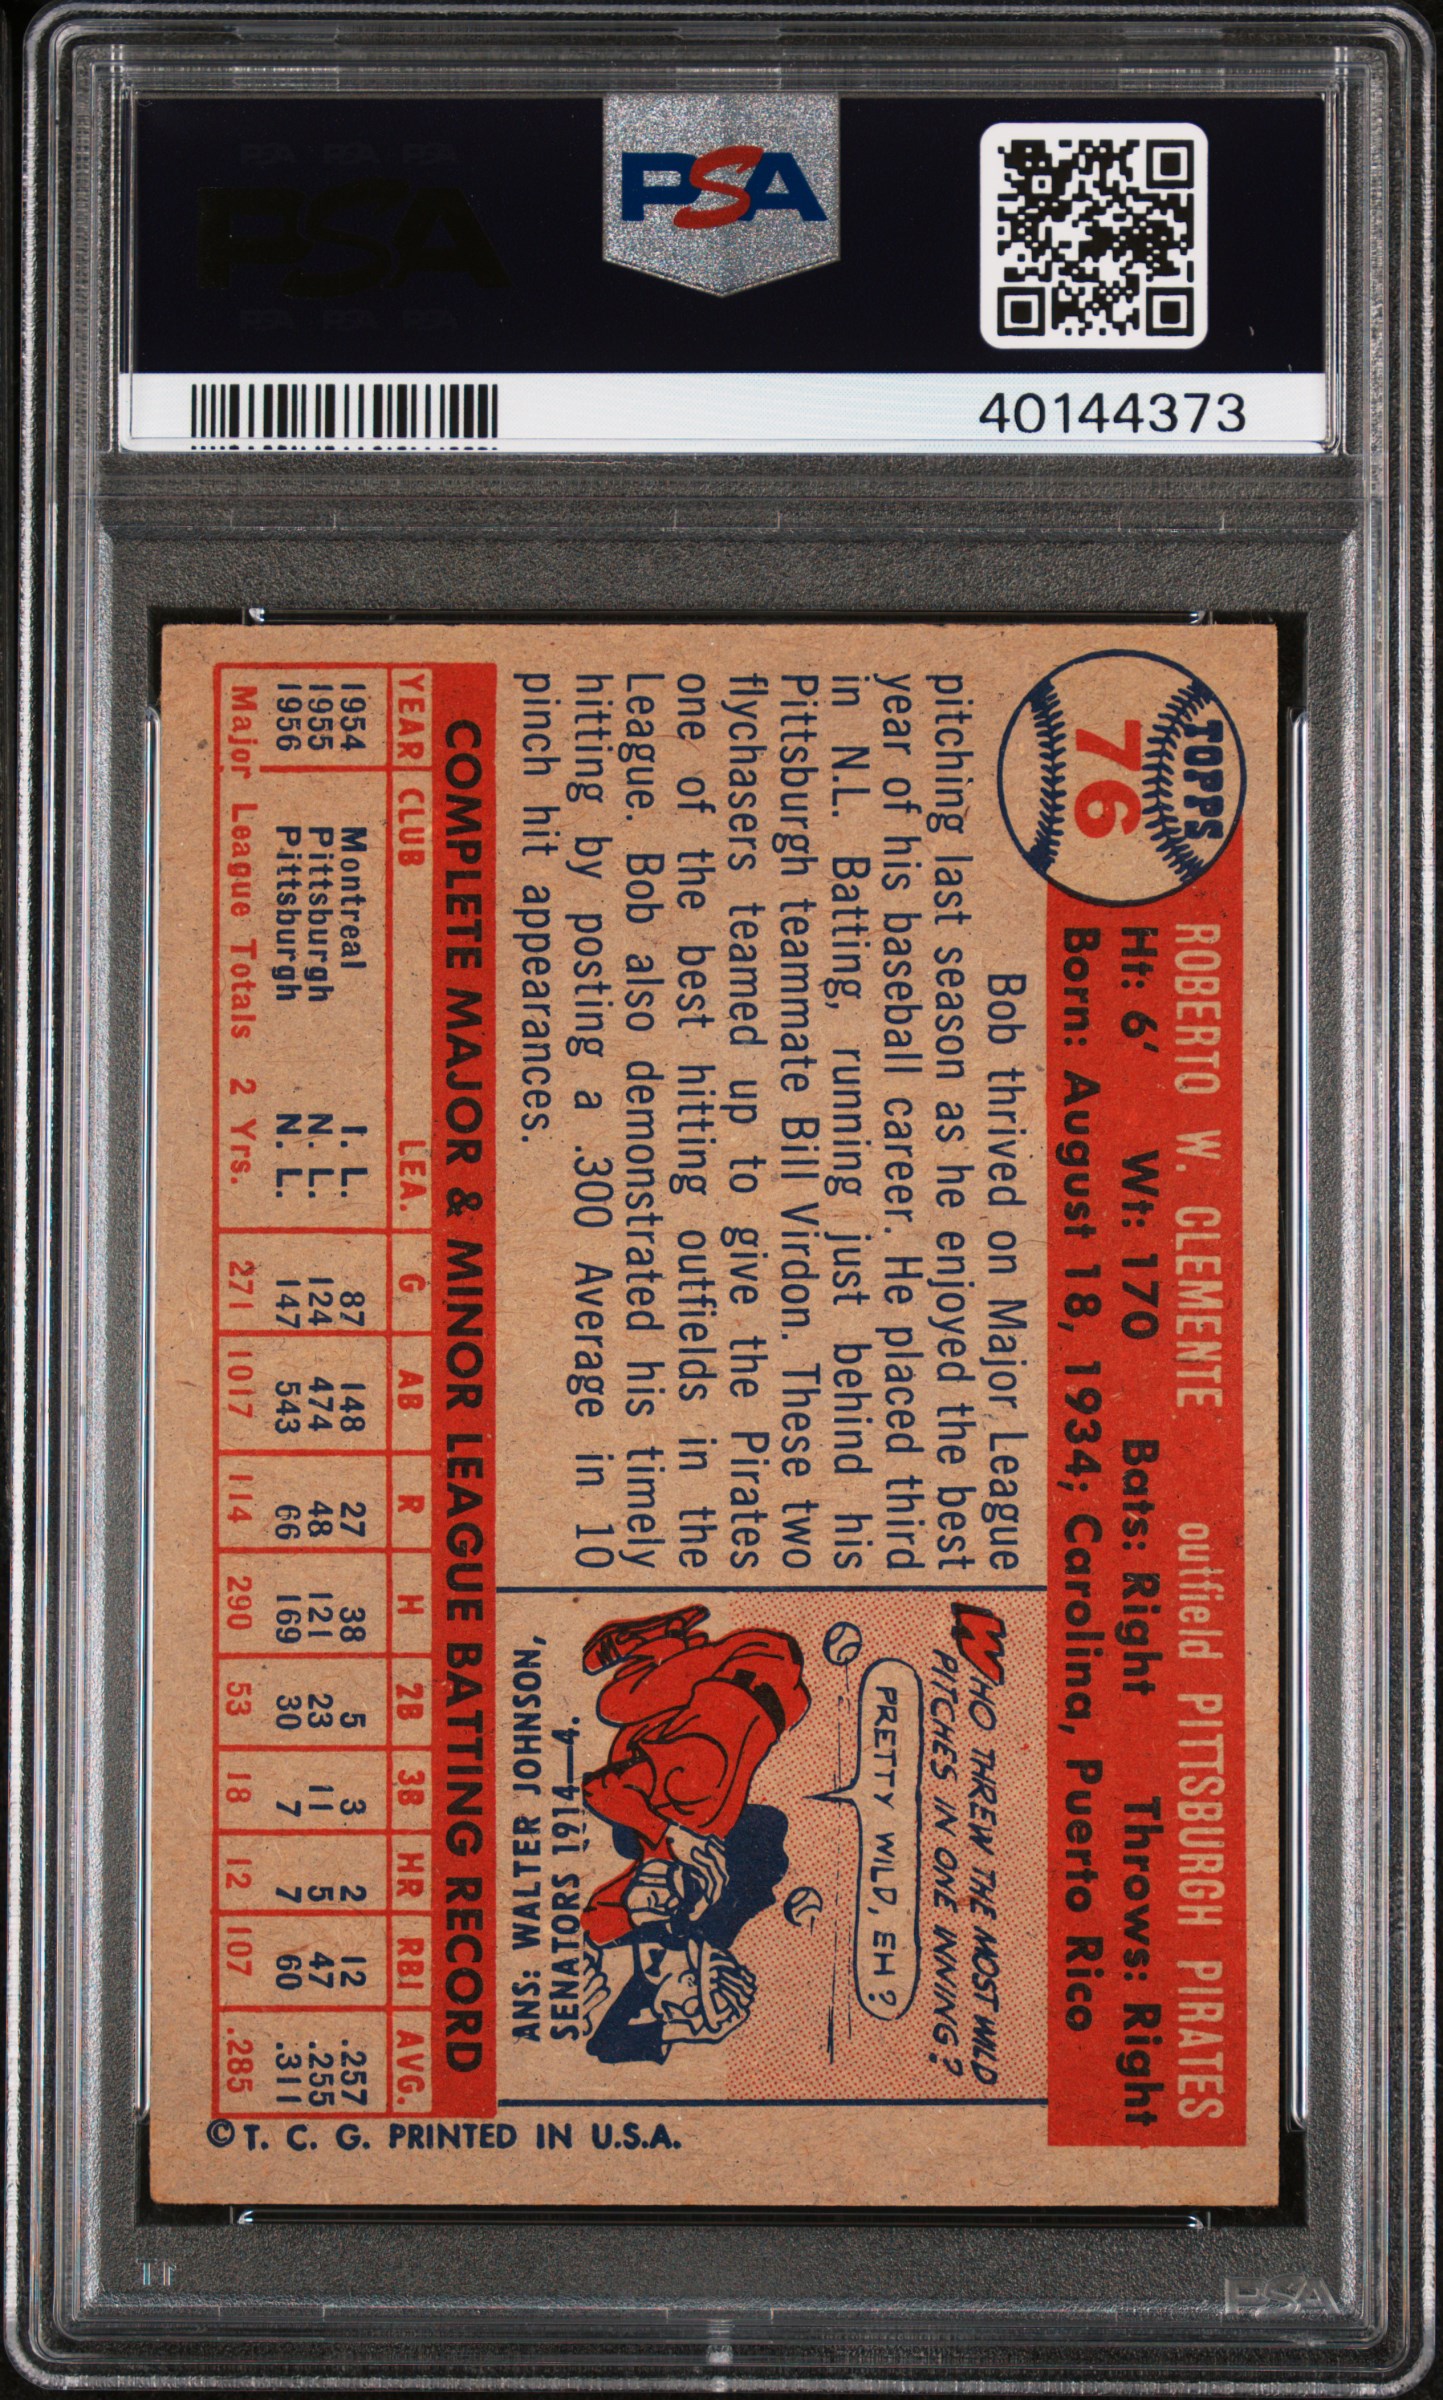 PSA PSA PSA
PSA
PSA PSA PSA
PSA
40144373
TOPPS
76
ROBERTO W. CLEMENTE outfield PITTSBURGH PIRATES
Ht: 6' Wt: 170 Bats: Right Throws: Right
Born: August 18, 1934; Carolina, Puerto Rico
Bob thrived on Major League
pitching last season as he enjoyed the best
year of his baseball career. He placed third
in N.L. Batting, running just behind his
Pittsburgh teammate Bill Virdon. These two
flychasers teamed up to give the Pirates
one of the best hitting outfields in the
League. Bob also demonstrated his timely
hitting by posting a .300 Average in 10
pinch hit appearances.
WHO THREW THE MOST WILD
PITCHES IN ONE INNING?
PRETTY WILD, EH?
SENATORS 1914—4.
ANS: WALTER JOHNSON,
COMPLETE MAJOR & MINOR LEAGUE BATTING RECORD
YEAR CLUB LEA. G AB R H 2B 3B HR RBI AVG.
1954 Montreal I. L. 87 148 27 38 5 3 2 12 .257
1955 Pittsburgh N. L. 124 474 48 121 23 11 5 47 .255
1956 Pittsburgh N. L. 147 543 66 169 30 7 7 60 .311
Major League Totals 2 Yrs. 271 1017 114 290 53 18 12 107 .285
© T. C. G. PRINTED IN U.S.A.
PSA